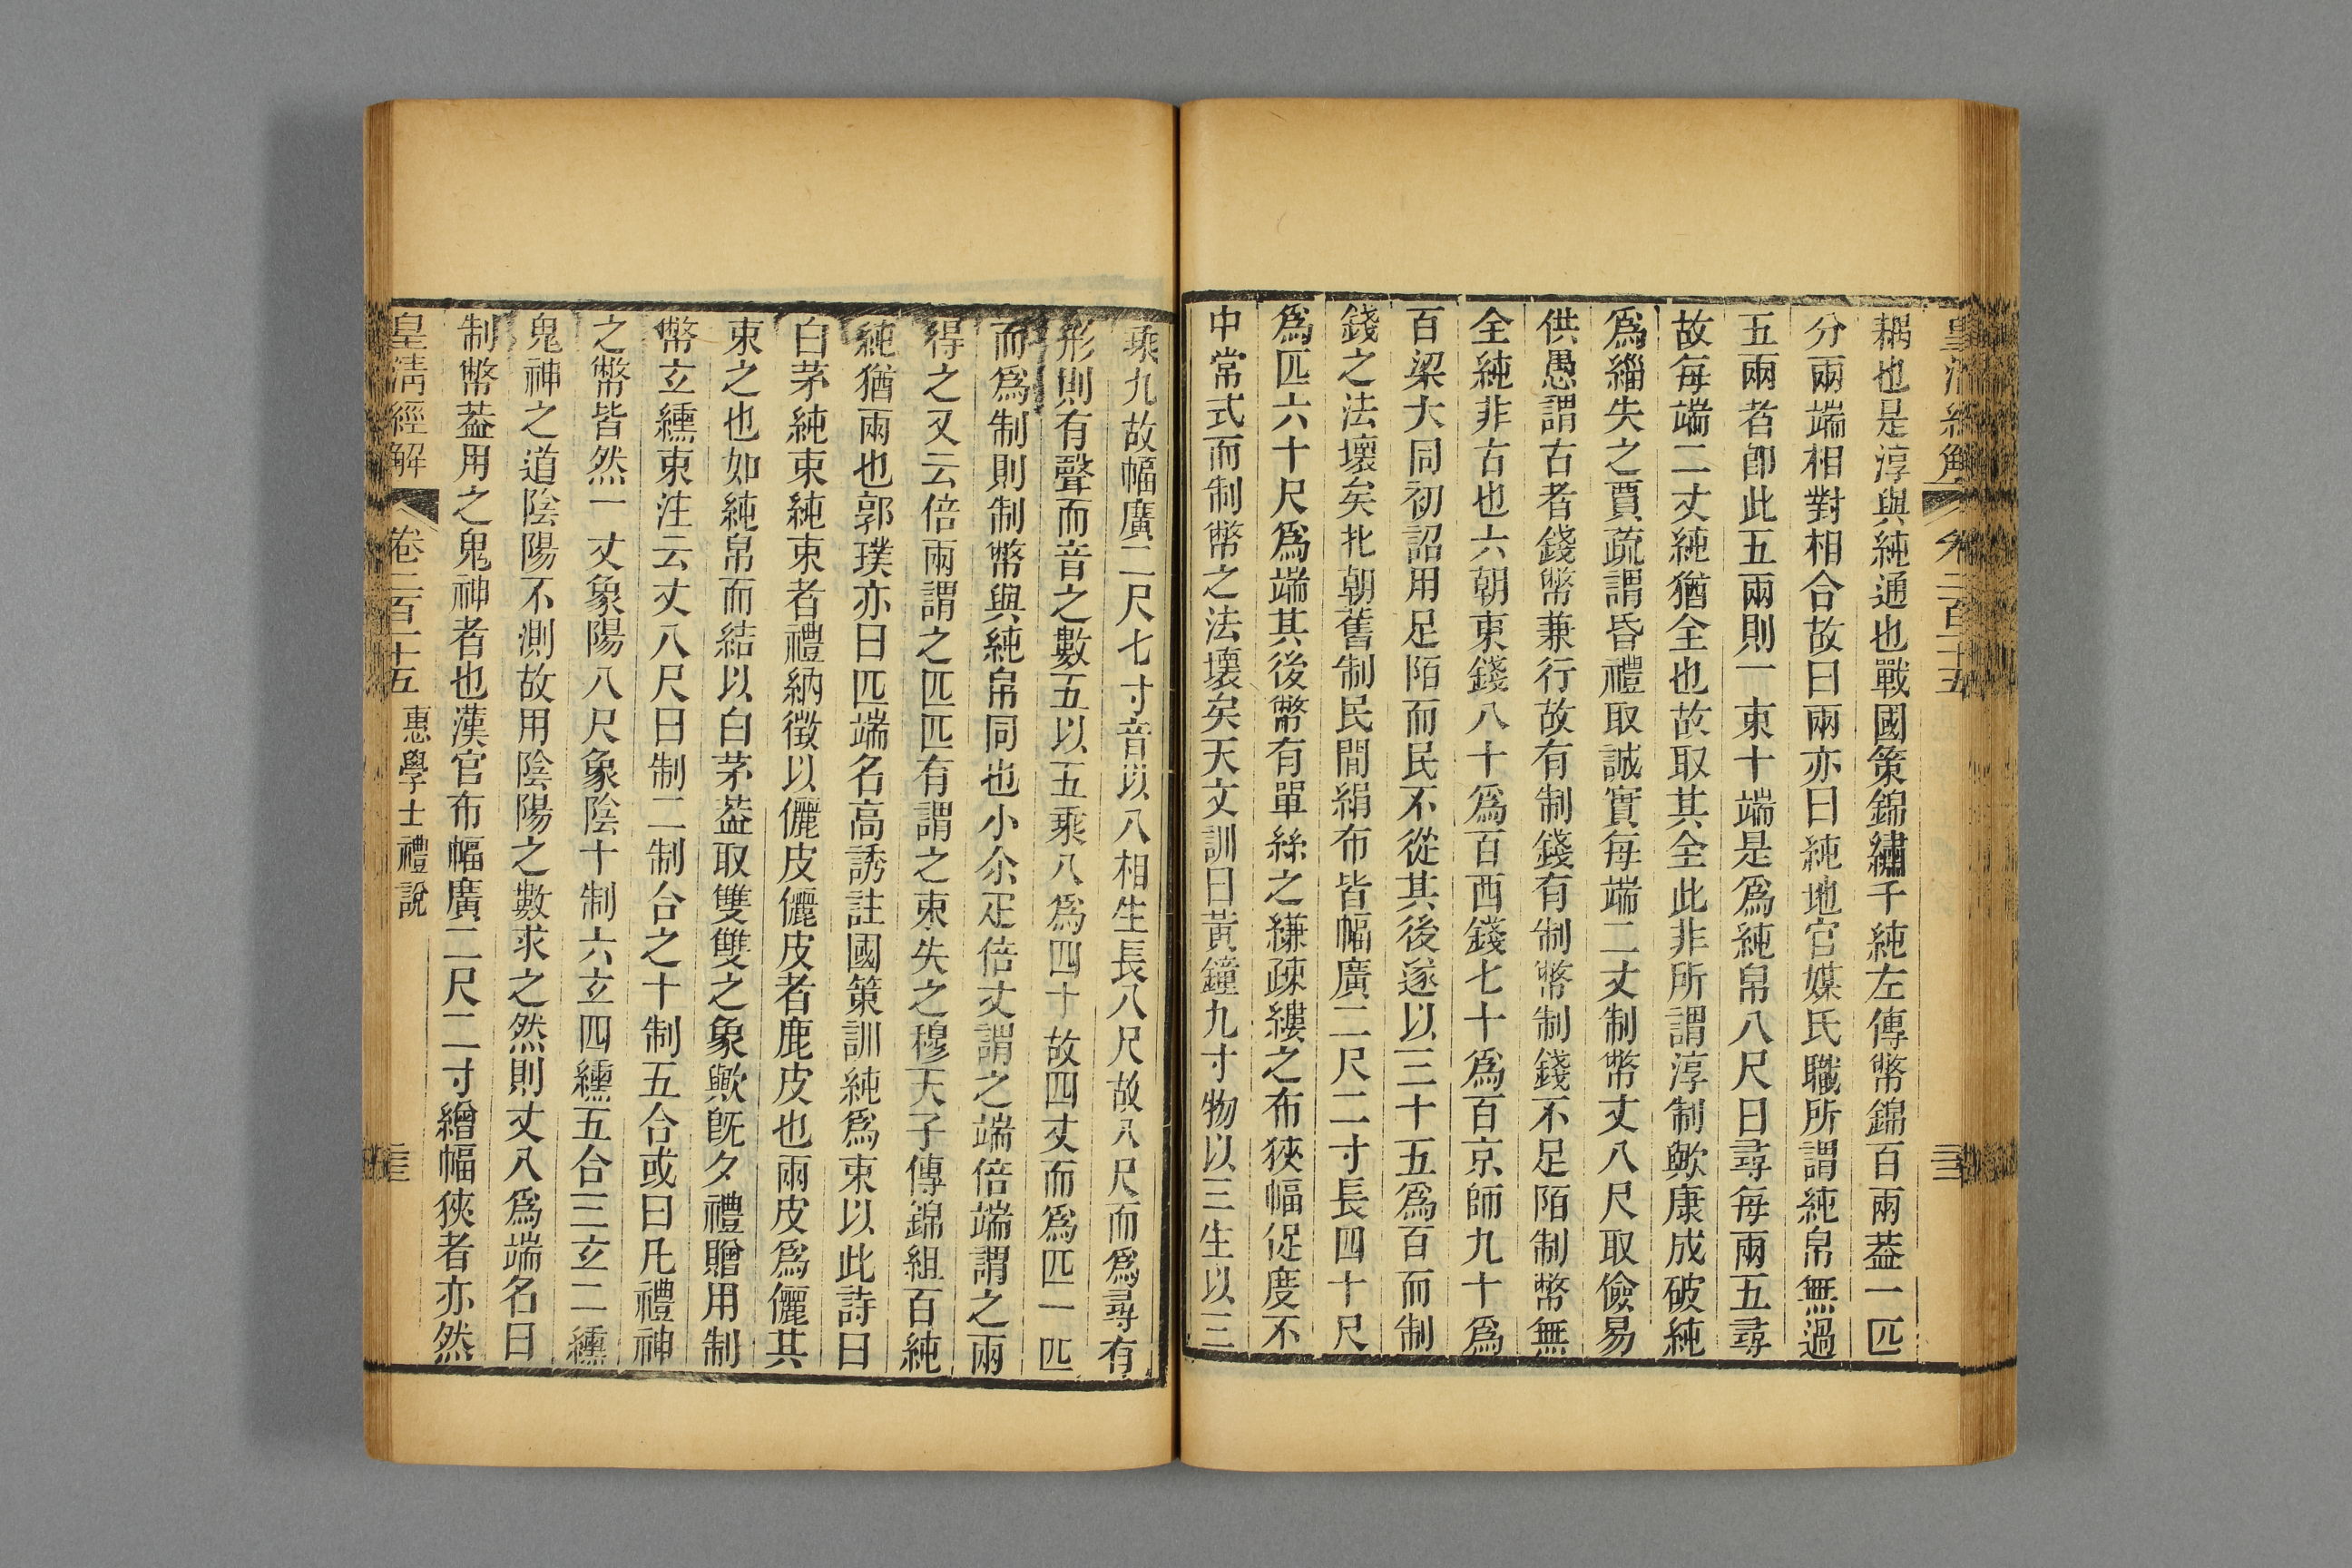 皇清經解 卷二百十五
耦也是淳與純通也戰國策錦繡千純左傳幣錦百兩葢一匹
分兩端相對相合故曰兩亦曰純地官媒氏職所謂純帛無過
五兩者卽此五兩則一束十端是爲純帛八尺曰尋每兩五尋
故每端二丈純猶全也故取其全此非所謂淳制歟康成破純
爲緇失之賈疏謂昏禮取誠實每端二丈制幣丈八尺取儉易
供愚謂古者錢幣兼行故有制錢有制幣制錢不足陌制幣無
全純非古也六朝東錢八十爲百西錢七十爲百京師九十爲
百梁大同初詔用足陌而民不從其後遂以三十五爲百而制
錢之法壞矣北朝舊制民間絹布皆幅廣二尺二寸長四十尺
爲匹六十尺爲端其後幣有單絲之縑疎縷之布狹幅促度不
中常式而制幣之法壞矣天文訓曰黃鐘九寸物以三生以三
乘九故幅廣二尺七寸音以八相生長八尺故八尺而爲尋有
形則有聲而音之數五以五乘八爲四十故四丈而爲匹一匹
而爲制則制幣與純帛同也小尒疋倍丈謂之端倍端謂之兩
得之又云倍兩謂之匹匹有謂之束失之穆天子傳錦組百純
純猶兩也郭璞亦曰匹端名高誘註國策訓純爲束以此詩曰
白茅純束純束者禮納徵以儷皮儷皮者鹿皮也兩皮爲儷其
束之也如純帛而結以白茅葢取雙雙之象歟旣夕禮贈用制
幣玄纁束注云丈八尺曰制二制合之十制五合或曰凡禮神
之幣皆然一丈象陽八尺象陰十制六玄四纁五合三玄二纁
鬼神之道陰陽不測故用陰陽之數求之然則丈八爲端名曰
制幣葢用之鬼神者也漢官布幅廣二尺二寸繒幅狹者亦然
皇清經解 卷二百十五 惠學士禮說 三